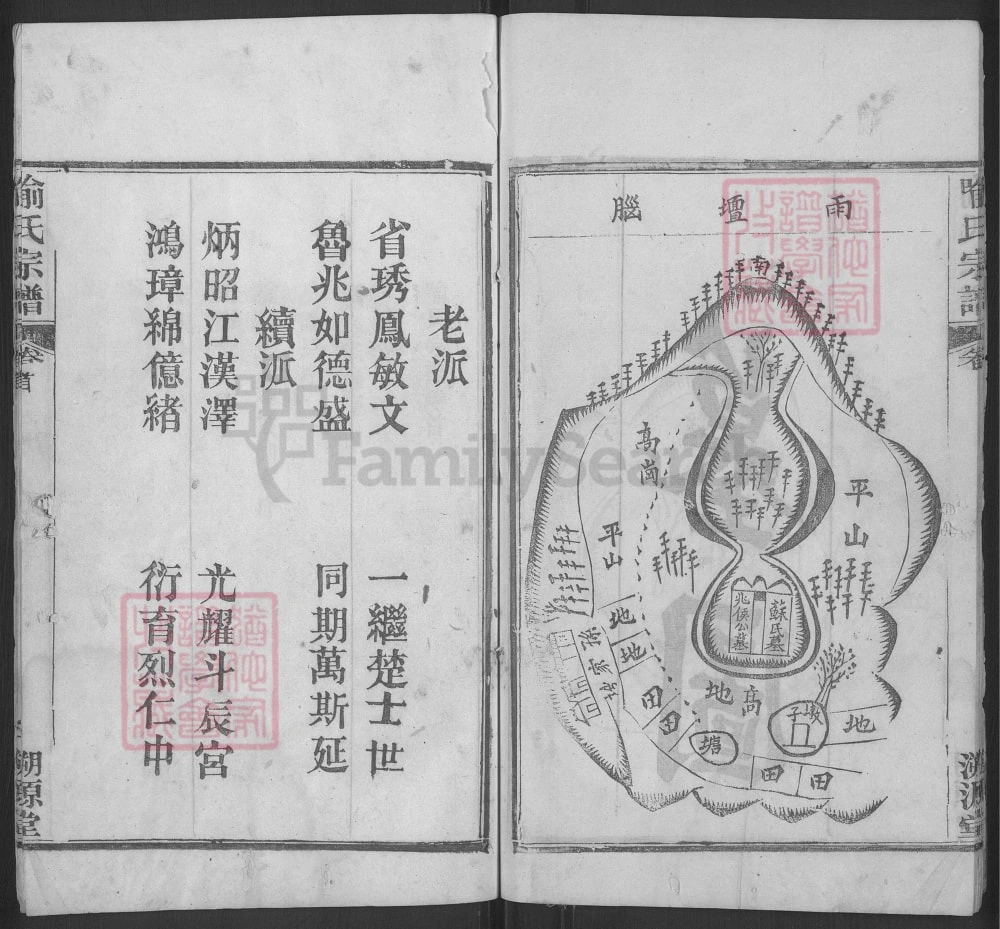 雨壇腦
南
高崗
平山
平山
蘇氏墓
兆侯公墓
地
地
孫家塆
田
田
塘
高地
坂子
地
田
田
喻氏宗譜
卷
溯源堂
老派
省琇鳳敏文 一繼楚士世
魯兆如德盛 同期萬斯延
續派
炳昭江漢澤 光耀斗辰宮
鴻璋綿億緒 衍育烈仁申
喻氏宗譜
卷首
溯源堂
FamilySearch